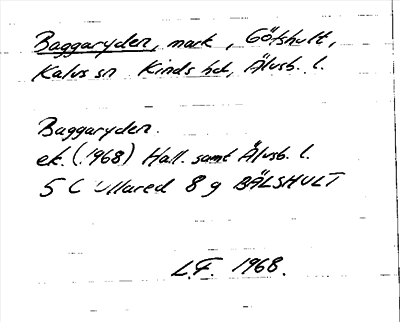 Baggaryden, mark, Götshult,
Kalvs sn Kinds hd, Älvsb. l.
Baggaryden.
ek. (1968) Hall. samt Älvsb. l.
5 C Ullared 8 g BÄLSHULT
L.F. 1968.